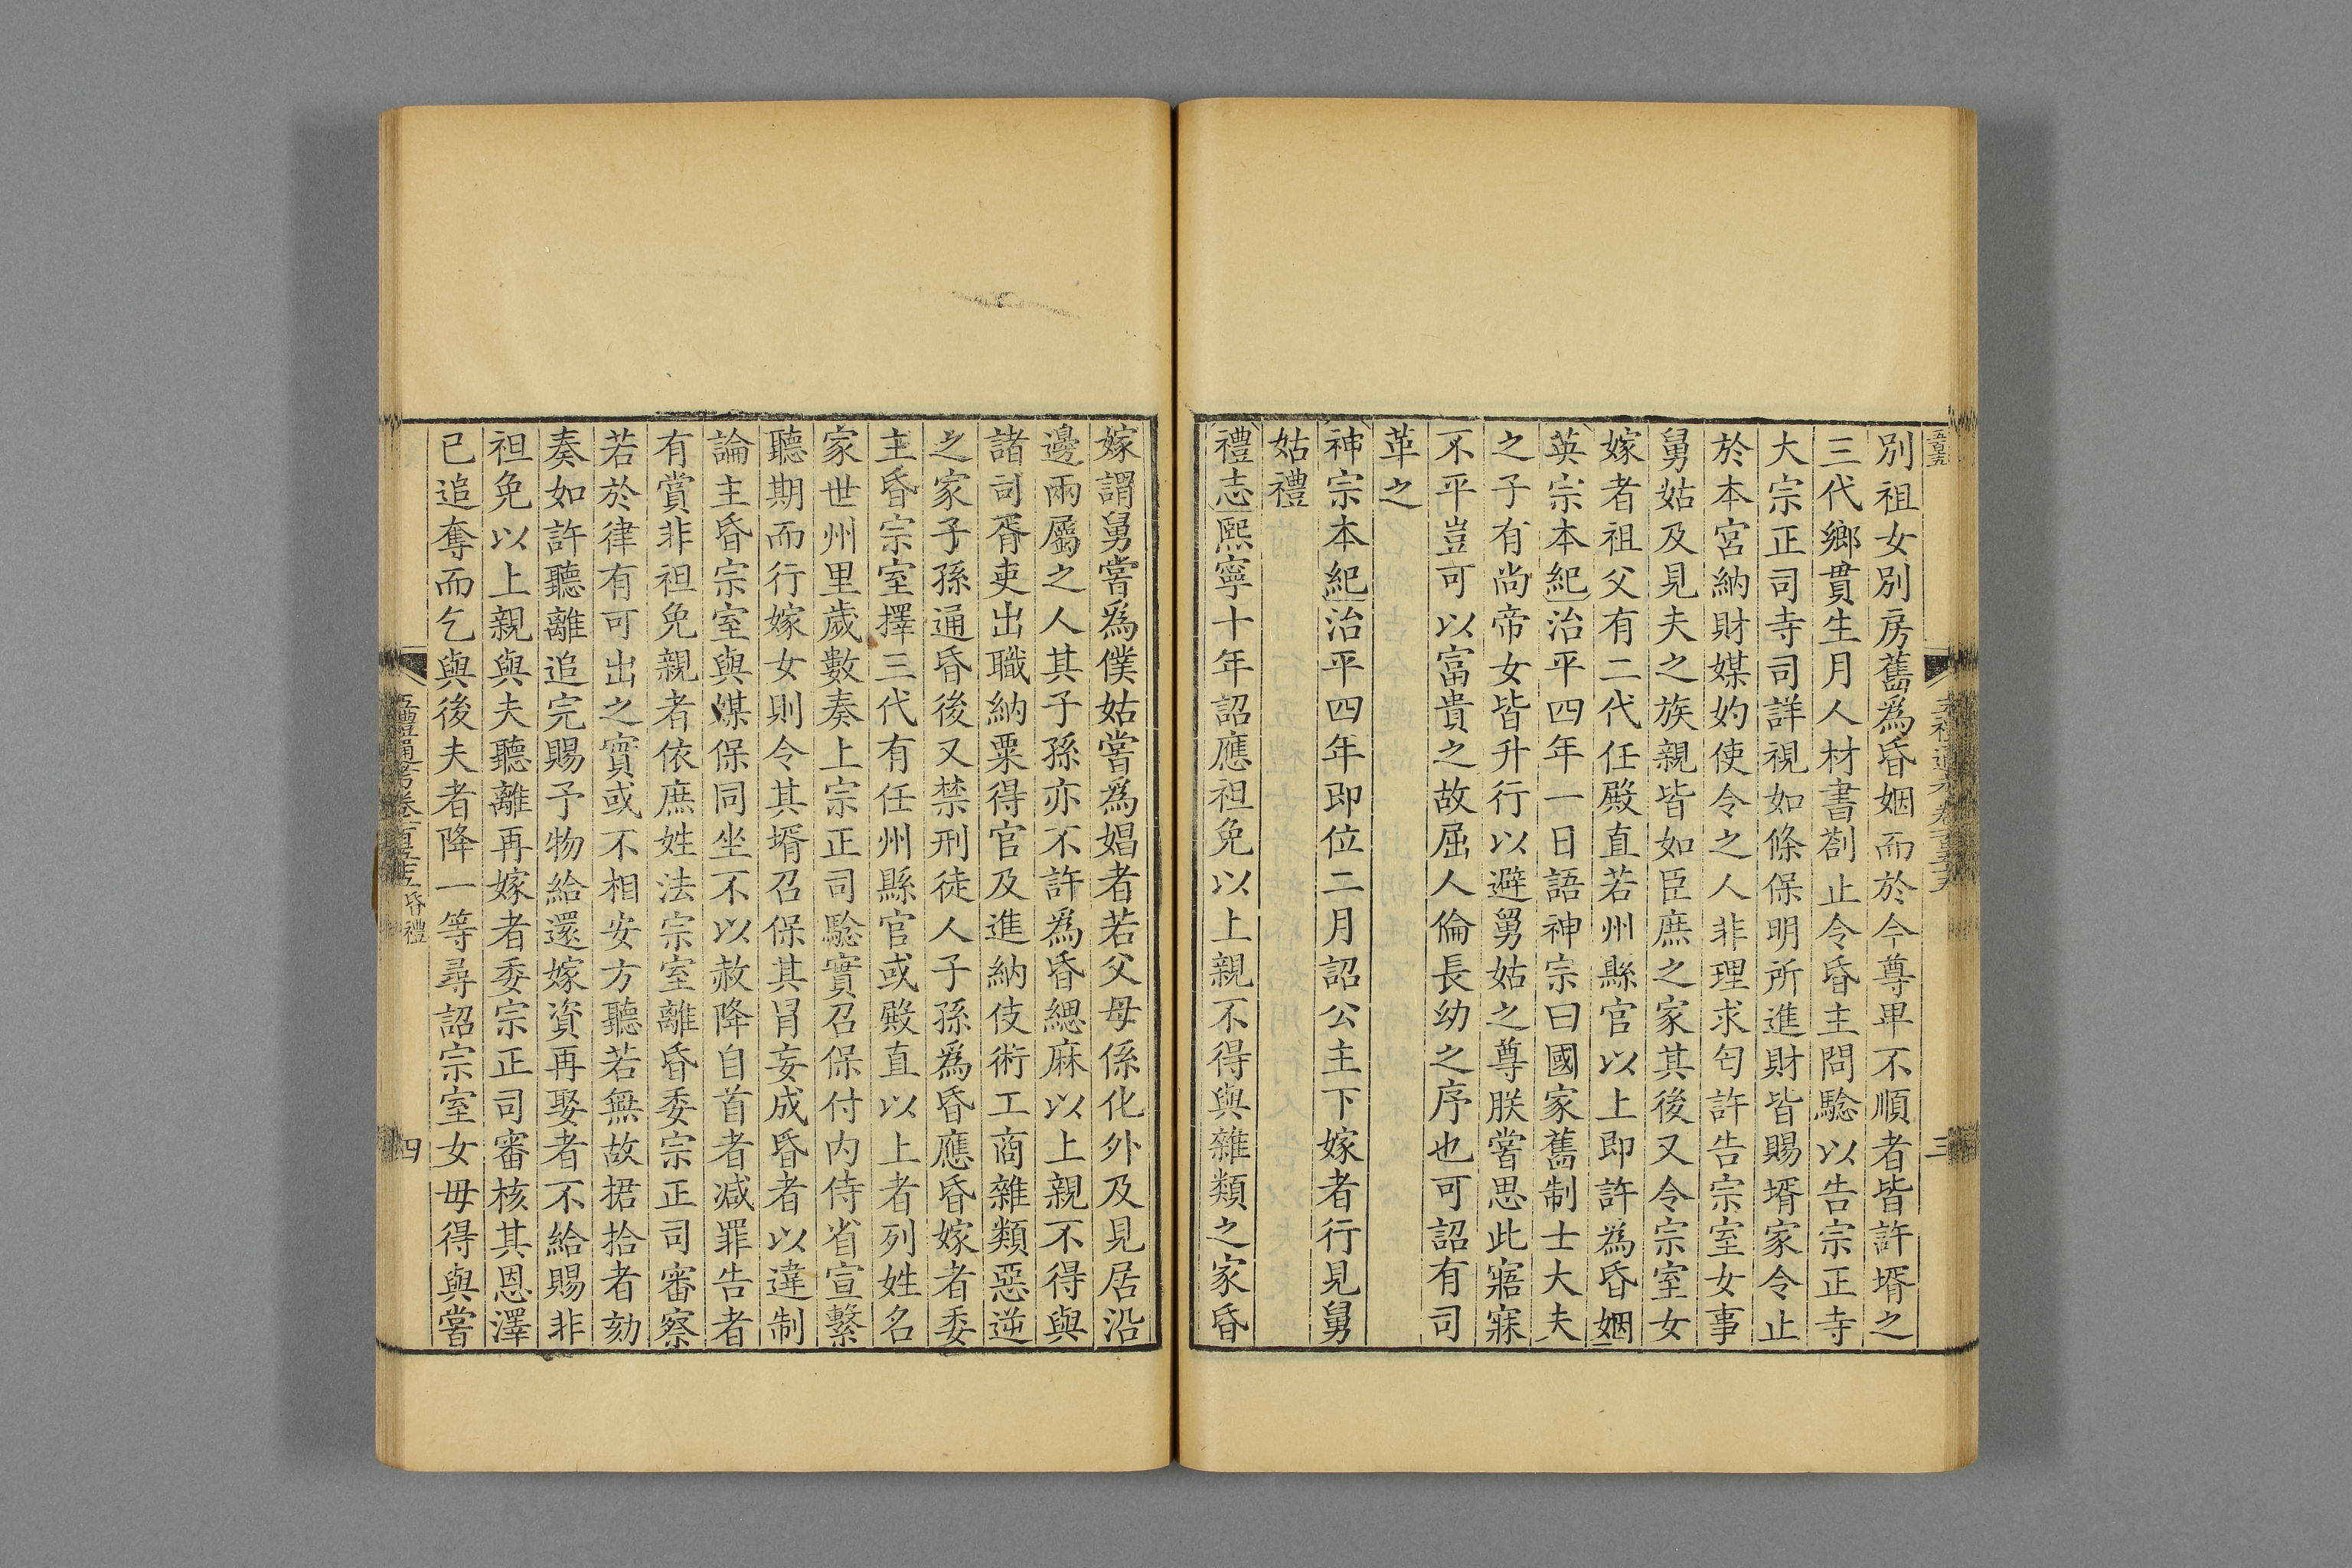 別祖女別房舊為昏姻而於今尊畢不順者皆許壻之
三代鄉貫生月人材書劄止令昏主問驗以告宗正寺
大宗正司寺司詳視如條保明所進財皆賜壻家令止
於本宮納財媒妁使令之人非理求匄許告宗室女事
舅姑及見夫之族親皆如臣庶之家其後又令宗室女
嫁者祖父有二代任殿直若州縣官以上即許為昏姻
英宗本紀治平四年一日語神宗曰國家舊制士大夫
之子有尚帝女皆升行以避舅姑之尊朕嘗思此寤寐
不平豈可以富貴之故屈人倫長幼之序也可詔有司
革之
神宗本紀治平四年即位二月詔公主下嫁者行見舅
姑禮
禮志熙寧十年詔應袒免以上親不得與雜類之家昏
嫁謂舅嘗為僕姑嘗為娼者若父母係化外及見居沿
邊兩屬之人其子孫亦不許為昏緦麻以上親不得與
諸司胥吏出職納粟得官及進納伎術工商雜類惡逆
之家子孫通昏後又禁刑徒人子孫為昏應昏嫁者委
主昏宗室擇三代有任州縣官或殿直以上者列姓名
家世州里歲數奏上宗正司驗實召保付內侍省宣繫
聽期而行嫁女則令其壻召保其冒妄成昏者以違制
論主昏宗室與媒保同坐不以赦降自首者減罪告者
有賞非袒免親者依庶姓法宗室離昏委宗正司審察
若於律有可出之實或不相安方聽若無故捃拾者劾
奏如許聽離追完賜予物給還嫁資再娶者不給賜非
袒免以上親與夫聽離再嫁者委宗正司審核其恩澤
已追奪而乞與後夫者降一等尋詔宗室女毋得與嘗
昏禮
四